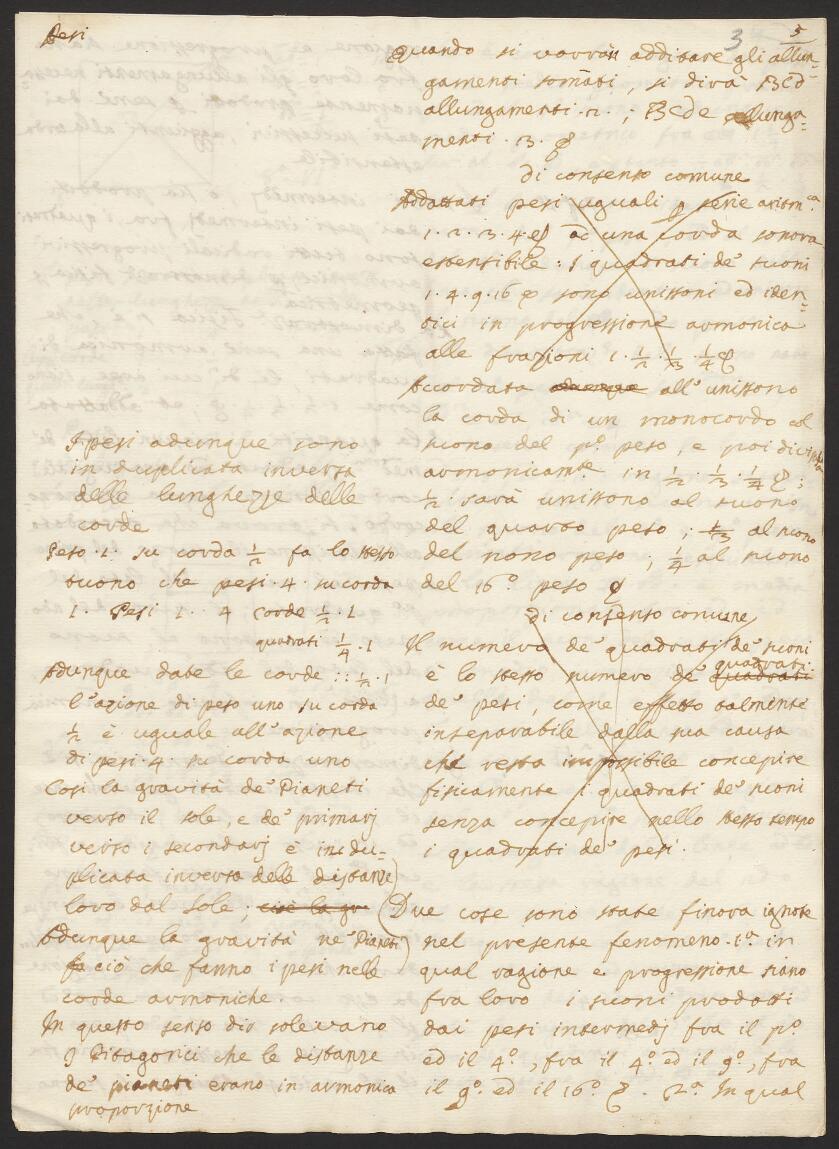 Pesi
3 5
Quando si vorrañ additare gli allun-
gamenti som̃ati, si dirà BCd
allungamenti 2. ; BCde allunga=
menti . 3. &
di consenso comune
Addattati pesi uguali p serie aritm.ca
1. 2. 3. 4 & ad una corda sonora
estensibile : I quadrati de' suoni
1. 4. 9. 16 & sono unissoni ed iden=
tici in progressione armonica
alle frazioni 1. 1/2. 1/3. 1/4 &
Accordata adunque all'unissono
la corda di un monocordo col
suono del p.o peso, e poi divisa
armonicam.te in 1/2. 1/3. 1/4 & ;
1/2 sarà unissono al suono
del quarto peso ; 1/3 al suono
del nono peso ; 1/4 al suono
del 16.o peso &
di consenso comune
Il numero de' quadrati de' suoni
è lo stesso numero de' quadrati
quadrati
de' pesi, come effetto talmente
inseparabile dalla sua causa
che resta impossibile concepire
fisicamente i quadrati de' suoni
senza concepire nello stesso tempo
i quadrati de' pesi.
Due cose sono state finora ignote
nel presente fenomeno. 1.a in
qual ragione e progressione siano
fra loro i suoni prodotti
dai pesi intermedj fra il p.o
ed il 4.o, fra il 4.o ed il 9.o, fra
il 9.o ed il 16.o &. 2.a In qual
I pesi adunque sono
in duplicata inversa
delle lunghezze delle
corde
Peso .1. su corda 1/2 fa lo stesso
suono che pesi .4. su corda
1. Pesi 1. 4 corde 1/2 . 1
quadrati 1/4 . 1
Adunque date le corde :: 1/2 . 1
l'azione di peso uno su corda
1/2 è uguale all'azione
di pesi 4. su corda uno
Così la gravità de' Pianeti
verso il sole, e de' primarj
verso i secondarj è in du-
plicata inversa delle distanze
loro dal Sole ; cioè la gr
Adunque la gravità ne' Pianeti
fa ciò che fanno i pesi nelle
corde armoniche.
In questo senso dir solevano
I Pitagorici che le distanze
de' pianeti erano in armonica
proporzione